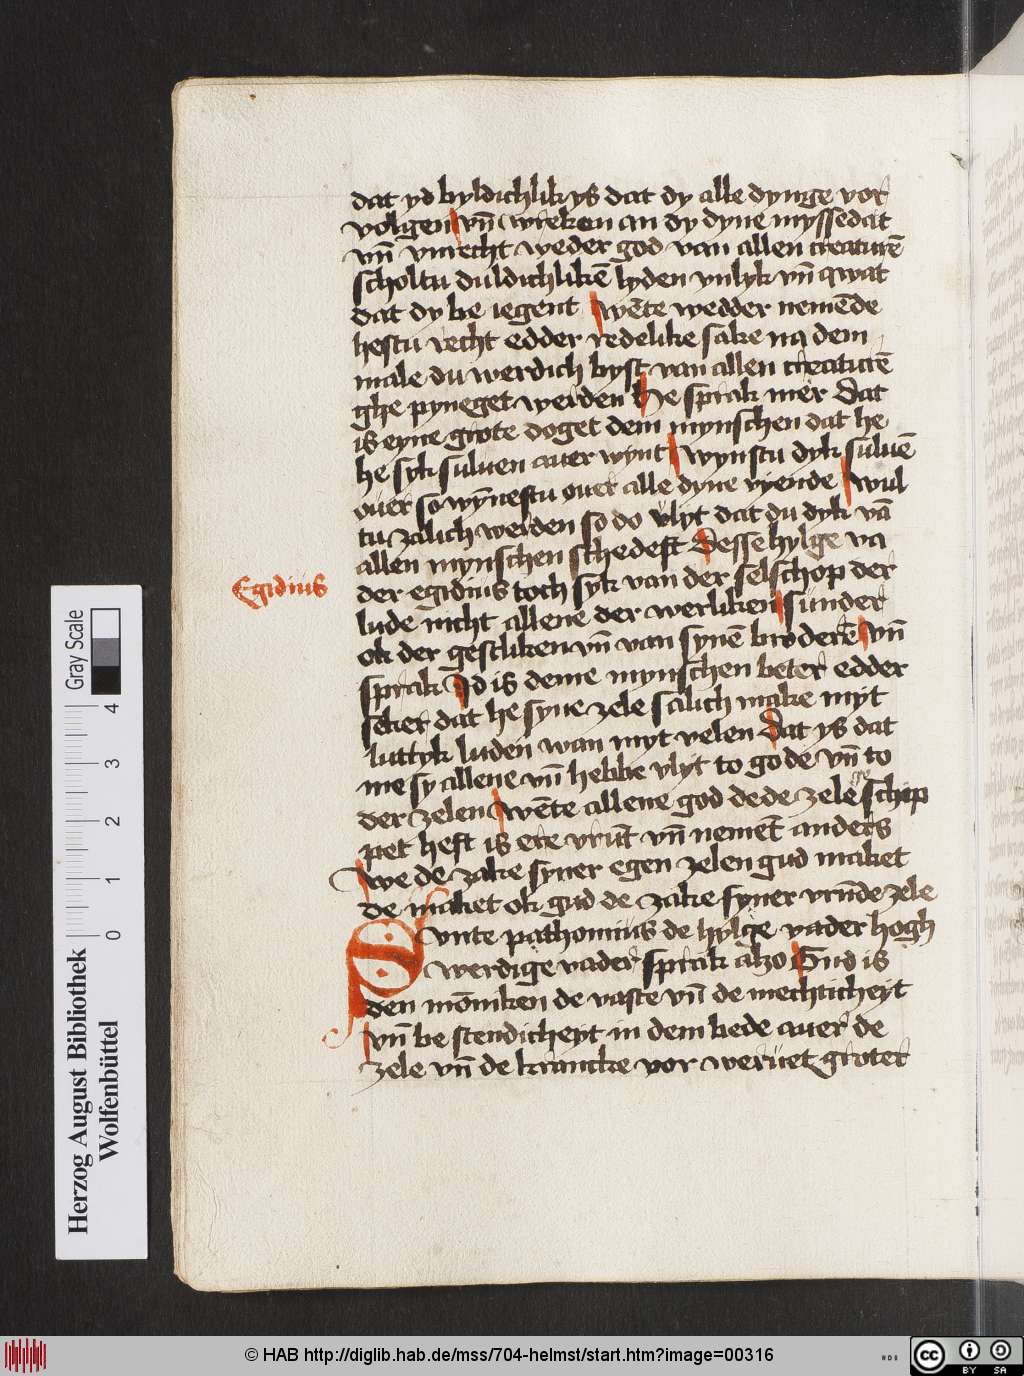 dat yd byldichlik ys dat dy alle dynge vor
volgen vn̄ wreken an dy dyne myssedat
vn̄ vnrecht weder god van allen creaturē
scholtu duldichlikē lyden vnlyk vn̄ qwat
dat dy be iegent wēte wedder nemēde
hestu recht edder redelike sake na dem
male du werdich byst van allen creaturē
ghe pyneget werden He sprak mer Dat
is eyne grote doget dem mynschen dat he
he syk suluen auer wynt wynstu dyk suluē
ouer so wȳnestu ouer alle dyne vyende wul
tu zalich werden so do vlyt dat du dyk vā
allen mynschen schedest Desse hylge va
Egidius
der egidius toch syk van der selschop der
lude nicht allene der werliken sunder
ok der gestliken vn̄ van synē broderē vn̄
sprak Id is deme mynschen beter edder
seker dat he syne zele salich make myt
luttyk luden wan myt velen Dat ys dat
me sy allene vn̄ hebbe vlyt to gode vn̄ to
der zelen wēte allene god dede zele ge schip
pet heft is ere vrūt vn̄ nemet anders
we de zake syner egen zelen gud maket
de maket ok gud de zake syner vrūde zele
Sunte pathomius de hylge vader hogh
werdige vader sprak alzo Gud is
den mōniken de vaste vn̄ de mechticheyt
vn̄ be stendicheyt in dem bede auer de
zele vn̄ de krancke vor weruet groter
Gray Scale
0 1 2 3 4
Herzog August Bibliothek
Wolfenbüttel
© HAB http://diglib.hab.de/mss/704-helmst/start.htm?image=00316
cc BY SA